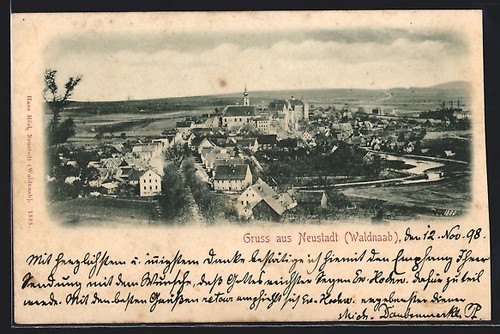 Hans Hösl, Neustadt (Waldnaab). 1898.
Gruss aus Neustadt (Waldnaab), den 12. Nov. 98.
Mit herzlichstem u. innigstem Dank bestätige ich hiermit den Empfang Ihrer
Sendung mit dem Wunsche, daß Gottes reichster Segen Ew. Hochw. dafür zu teil
werde. Mit den besten Grüßen retour empfiehlt sich Ew. Hochw. ergebenster Diener
Mich. Daubenmerkl, Pf.